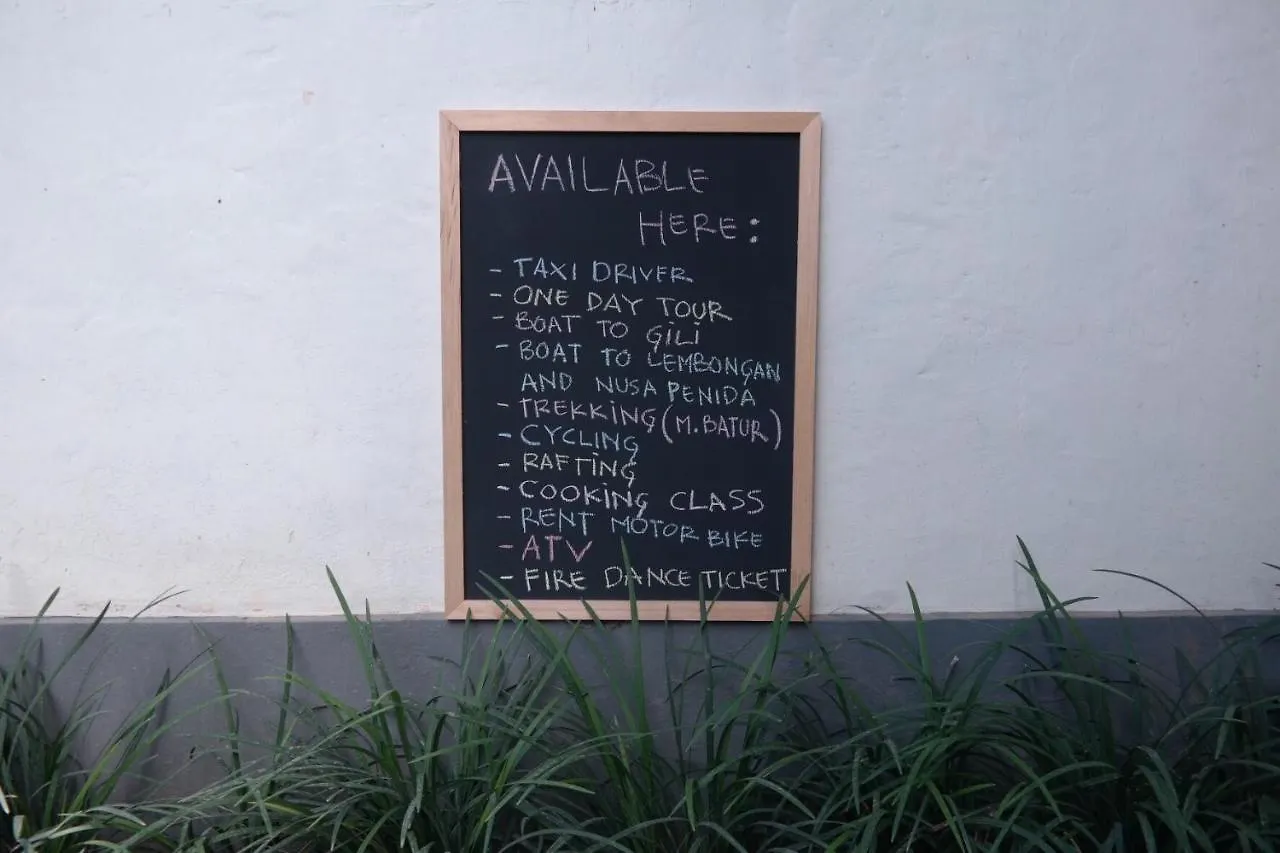 AVAILABLE
HERE:
- TAXI DRIVER
- ONE DAY TOUR
- BOAT TO GILI
- BOAT TO LEMBONGAN
AND NUSA PENIDA
- TREKKING (M.BATUR)
- CYCLING
- RAFTING
- COOKING CLASS
- RENT MOTOR BIKE
- ATV
- FIRE DANCE TICKET